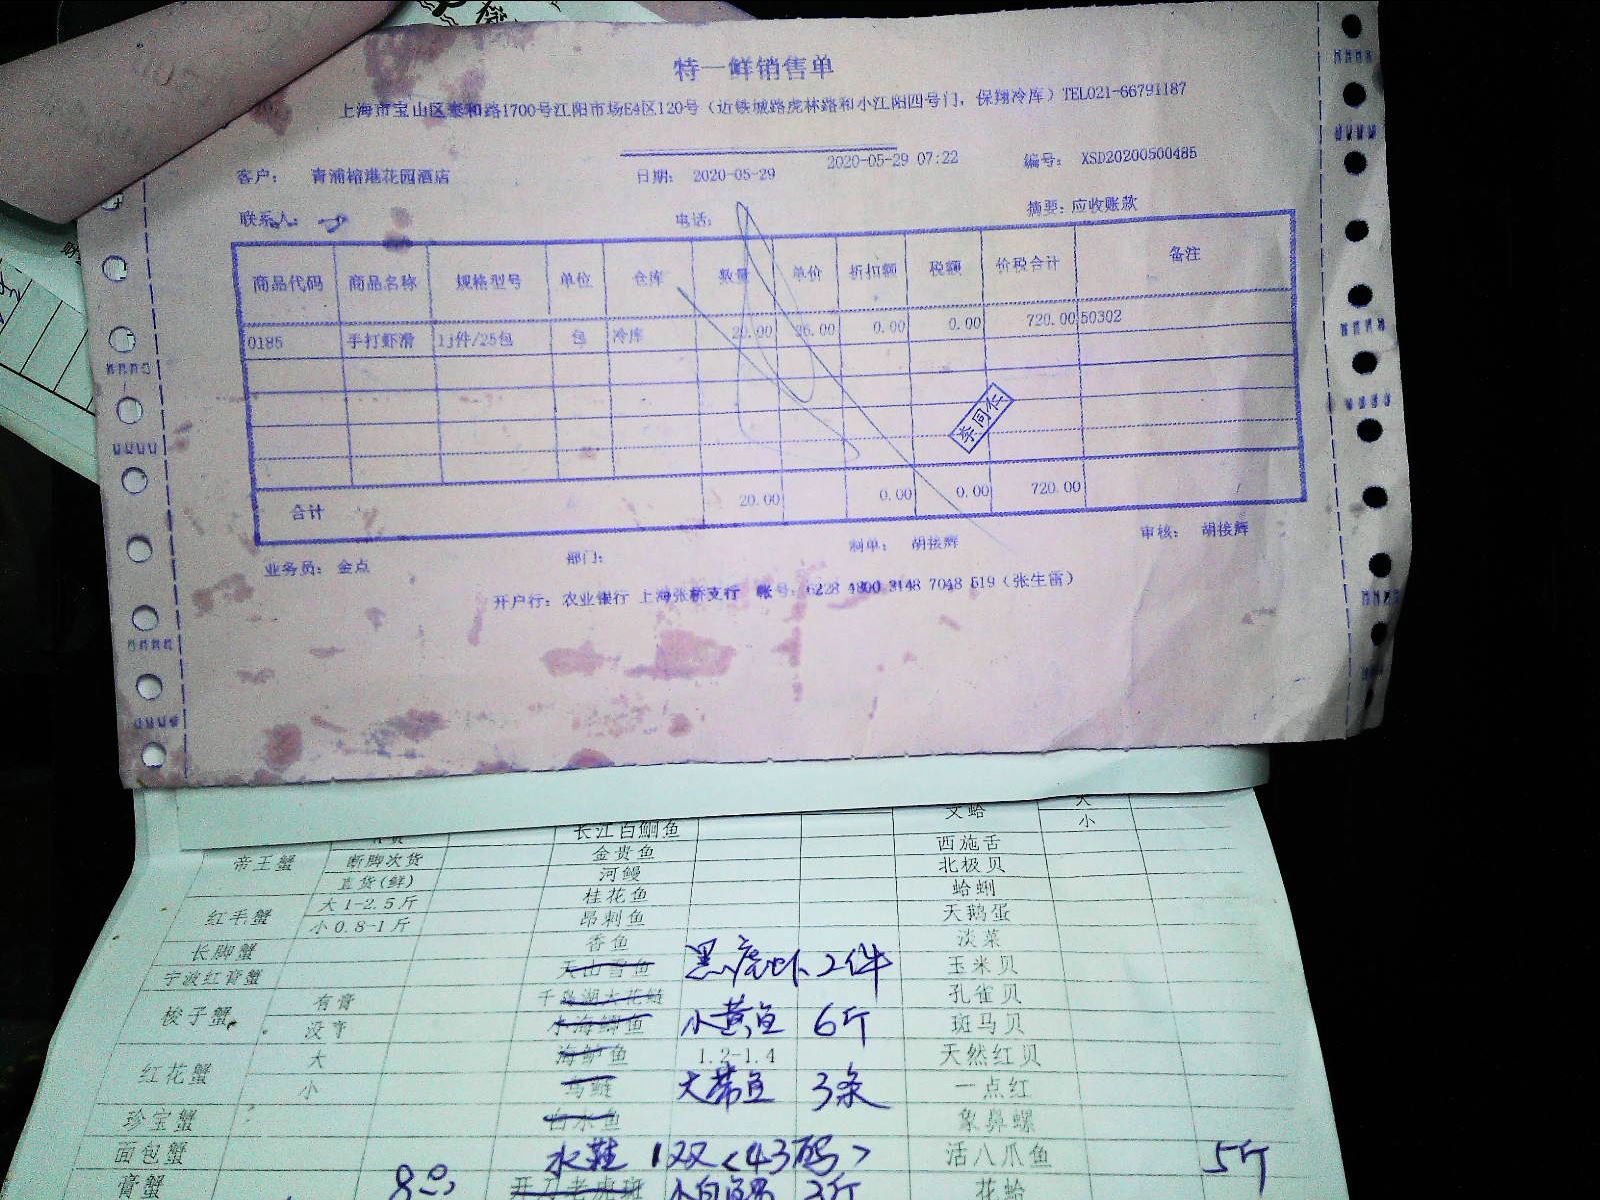 特一鲜销售单
上海市宝山区泰和路1700号江阳市场E4区120号（近铁城路虎林路和小江阳四号门，保翔冷库）TEL021-66791187
2020-05-29 07:22
客户： 青浦榕港花园酒店 日期： 2020-05-29 编号： XSD20200500485
联系人： 电话： 摘要：应收账款
商品代码 商品名称 规格型号 单位 仓库 数量 单价 折扣额 税额 价税合计 备注
0185 手打虾滑 1j件/25包 包 冷库 20.00 36.00 0.00 0.00 720.00 50302
李同仁
合计 20.00 0.00 0.00 720.00
业务员： 金点 部门： 制单： 胡接辉 审核： 胡接辉
开户行：农业银行 上海张桥支行 帐号：6228 4800 3148 7048 519（张生雷）
长江白鮰鱼 文蛤 大
小
帝王蟹 断脚次货 金贵鱼 西施舌
直货(鲜) 河鳗 北极贝
红毛蟹 大1-2.5斤 桂花鱼 蛤蜊
小0.8-1斤 昂刺鱼 天鹅蛋
长脚蟹 香鱼 淡菜
宁波红膏蟹 天山雪鱼 黑虎虾 2件 玉米贝
梭子蟹 有膏 千岛湖大花鲢 孔雀贝
没膏 小黄鱼 6斤 斑马贝
红花蟹 大 海鲈鱼 1.2-1.4 天然红贝
小 大带鱼 3条 一点红
珍宝蟹 白水鱼 象鼻螺
面包蟹 水鞋 1双<43码> 活八爪鱼 5斤
膏蟹 8 开刀老虎斑 花蛤